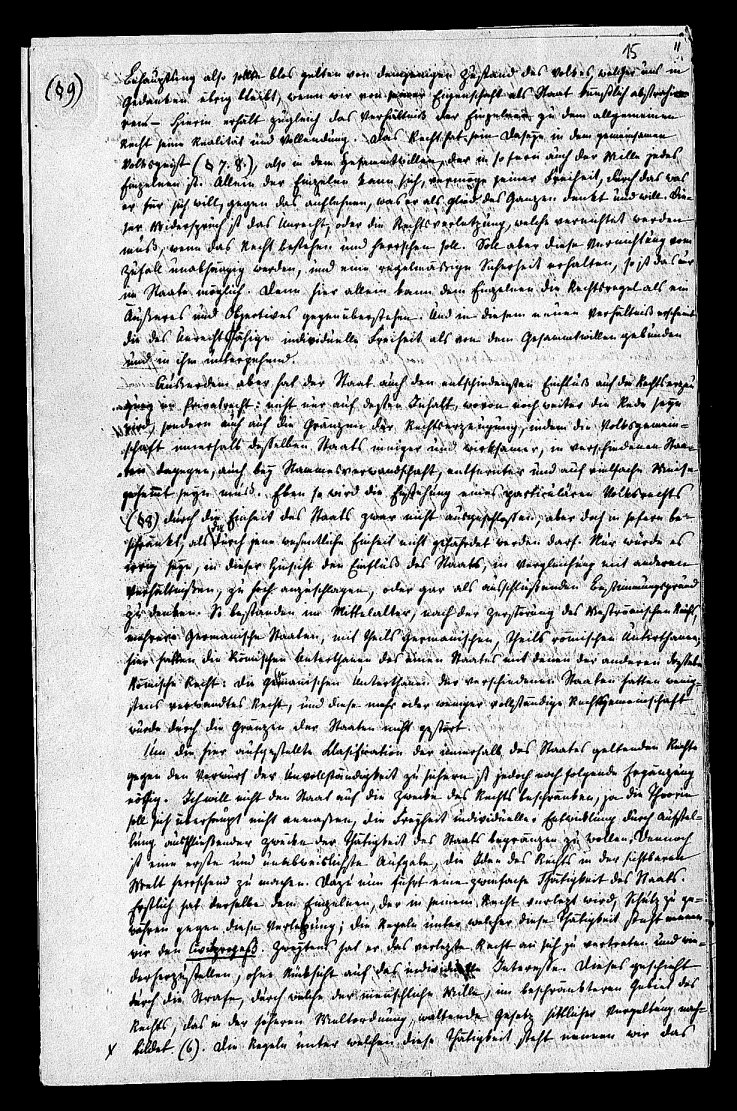 15 11
(§9)
Behauptung also sollte blos gelten von demjenigen Zustand des Volkes, welcher uns in
Gedanken übrig bleibt, wenn wir von seiner Eigenschaft als Staat künstlich abstrahi-
ren. – Hierin erhält zugleich das Verhältniß der Einzelnen zu dem allgemeinen
Recht seine Realität und Vollendung. Das Recht hat sein Daseyn in dem gemeinsamen
Volksgeist (§ 7. 8.), also in dem Gesammtwillen, der in sofern auch der Wille jedes
Einzelnen ist. Allein der Einzelne kann sich, vermöge seiner Freiheit, durch das was
er für sich will, gegen das auflehnen, was er als Glied des Ganzen denkt und will. Die-
ser Widerspruch ist das Unrecht, oder die Rechtsverletzung, welche vernichtet werden
muß, wenn das Recht bestehen und herrschen soll. Soll aber diese Vernichtung vom
Zufall unabhängig werden, und eine regelmäßige Sicherheit erhalten, so ist das nur
im Staate möglich. Denn hier allein kann dem Einzelnen die Rechtsregel als ein
Äußeres und Objectives gegenüberstehen. Und in diesem neuen Verhältniß erscheint
die des Unrechts fähige individuelle Freiheit als von dem Gesammtwillen gebunden
und in ihm untergehend.
Ausserdem aber hat der Staat auch den entschiedensten Einfluß auf die Rechtserzeu-
gung im Privatrecht: nicht nur auf dessen Inhalt, wovon noch weiter die Rede seyn
wird, sondern auch auf die Gränzen der Rechtserzeugung, indem die Volksgemein-
schaft innerhalb desselben Staats inniger und wirksamer, in verschiedenen Staa-
ten dagegen, auch bey Stammesverwandschaft, entfernter und auf vielfache Weise
gehemmt seyn muß. Eben so wird die Entstehung eines particulären Volksrechts
(§8) durch die Einheit des Staats zwar nicht ausgeschlossen, aber doch in sofern be-
schränkt, als durch jene wesentliche Einheit nicht gefährdet werden darf. Nur würde es
irrig seyn, in dieser Hinsicht den Einfluß des Staats, in Vergleichung mit anderen
Verhältnissen, zu hoch anzuschlagen, oder gar als ausschließenden Bestimmungsgrund
zu denken. So bestanden im Mittelalter, nach der Zerstörung des Weströmischen Reichs,
mehrere Germanische Staaten, mit theils germanischen, theils römischen Unterthanen;
hier hatten die Römischen Unterthanen des einen Staates mit denen der anderen dasselbe
Römische Recht: die Germanischen Unterthanen der verschiedenen Staaten hatten wenig-
stens verwandtes Recht, und diese mehr oder weniger vollständige Rechtsgemeinschaft
wurde durch die Gränzen der Staaten nicht gestört.
Um die hier aufgestellte Klassification der innerhalb des Staates geltenden Rechte
gegen den Vorwurf der Unvollständigkeit zu sichern ist jedoch noch folgende Ergänzung
nöthig. Ich will nicht den Staat auf die Zwecke des Rechts beschränken, ja die Theorie
soll sich überhaupt nicht anmaßen, die Freyheit individueller Entwicklung durch Aufstel-
lung ausschließender Zwecke der Thätigkeit des Staats begränzen zu wollen. Dennoch
ist eine erste und unabweislichste Aufgabe, die Idee des Rechts in der sichtbaren
Welt herrschend zu machen. Dazu nun führt eine zweifache Thätigkeit des Staats.
Erstlich hat derselbe dem Einzelnen, der in seinem Recht verletzt wird, Schutz zu ge-
währen gegen diese Verletzung; die Regeln unter welcher diese Thätigkeit steht nennen
wir den Civilprozeß. Zweytens hat er das verletzte Recht an sich zu vertreten und wie-
derherzustellen, ohne Rücksicht auf das individuelle Interesse. Dieses geschieht
durch die Strafe, durch welche der menschliche Wille, im beschränkteren Gebiet des
Rechts, das in der höheren Weltordnung waltende Gesetz sittlicher Vergeltung nach-
bildet (b). Die Regeln unter welchen diese Thätigkeit steht nennen wir das